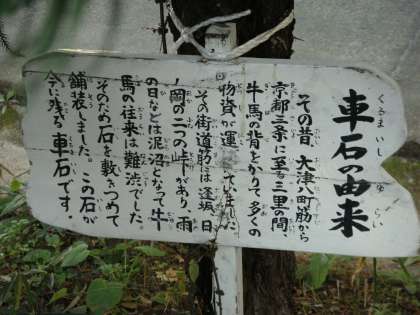 車石の由来
くるまいし ゆらい
その昔、大津八町筋から
京都三条に至る三里の間、
牛馬の背をかりて多くの
物資が運ばれていました。
その街道筋には逢坂、日
ノ岡の二つの峠があり、雨
の日などは泥沼となって牛
馬の往来は難渋でした。
そのため石を敷きつめて
舗装しました。この石が
今に残る車石です。